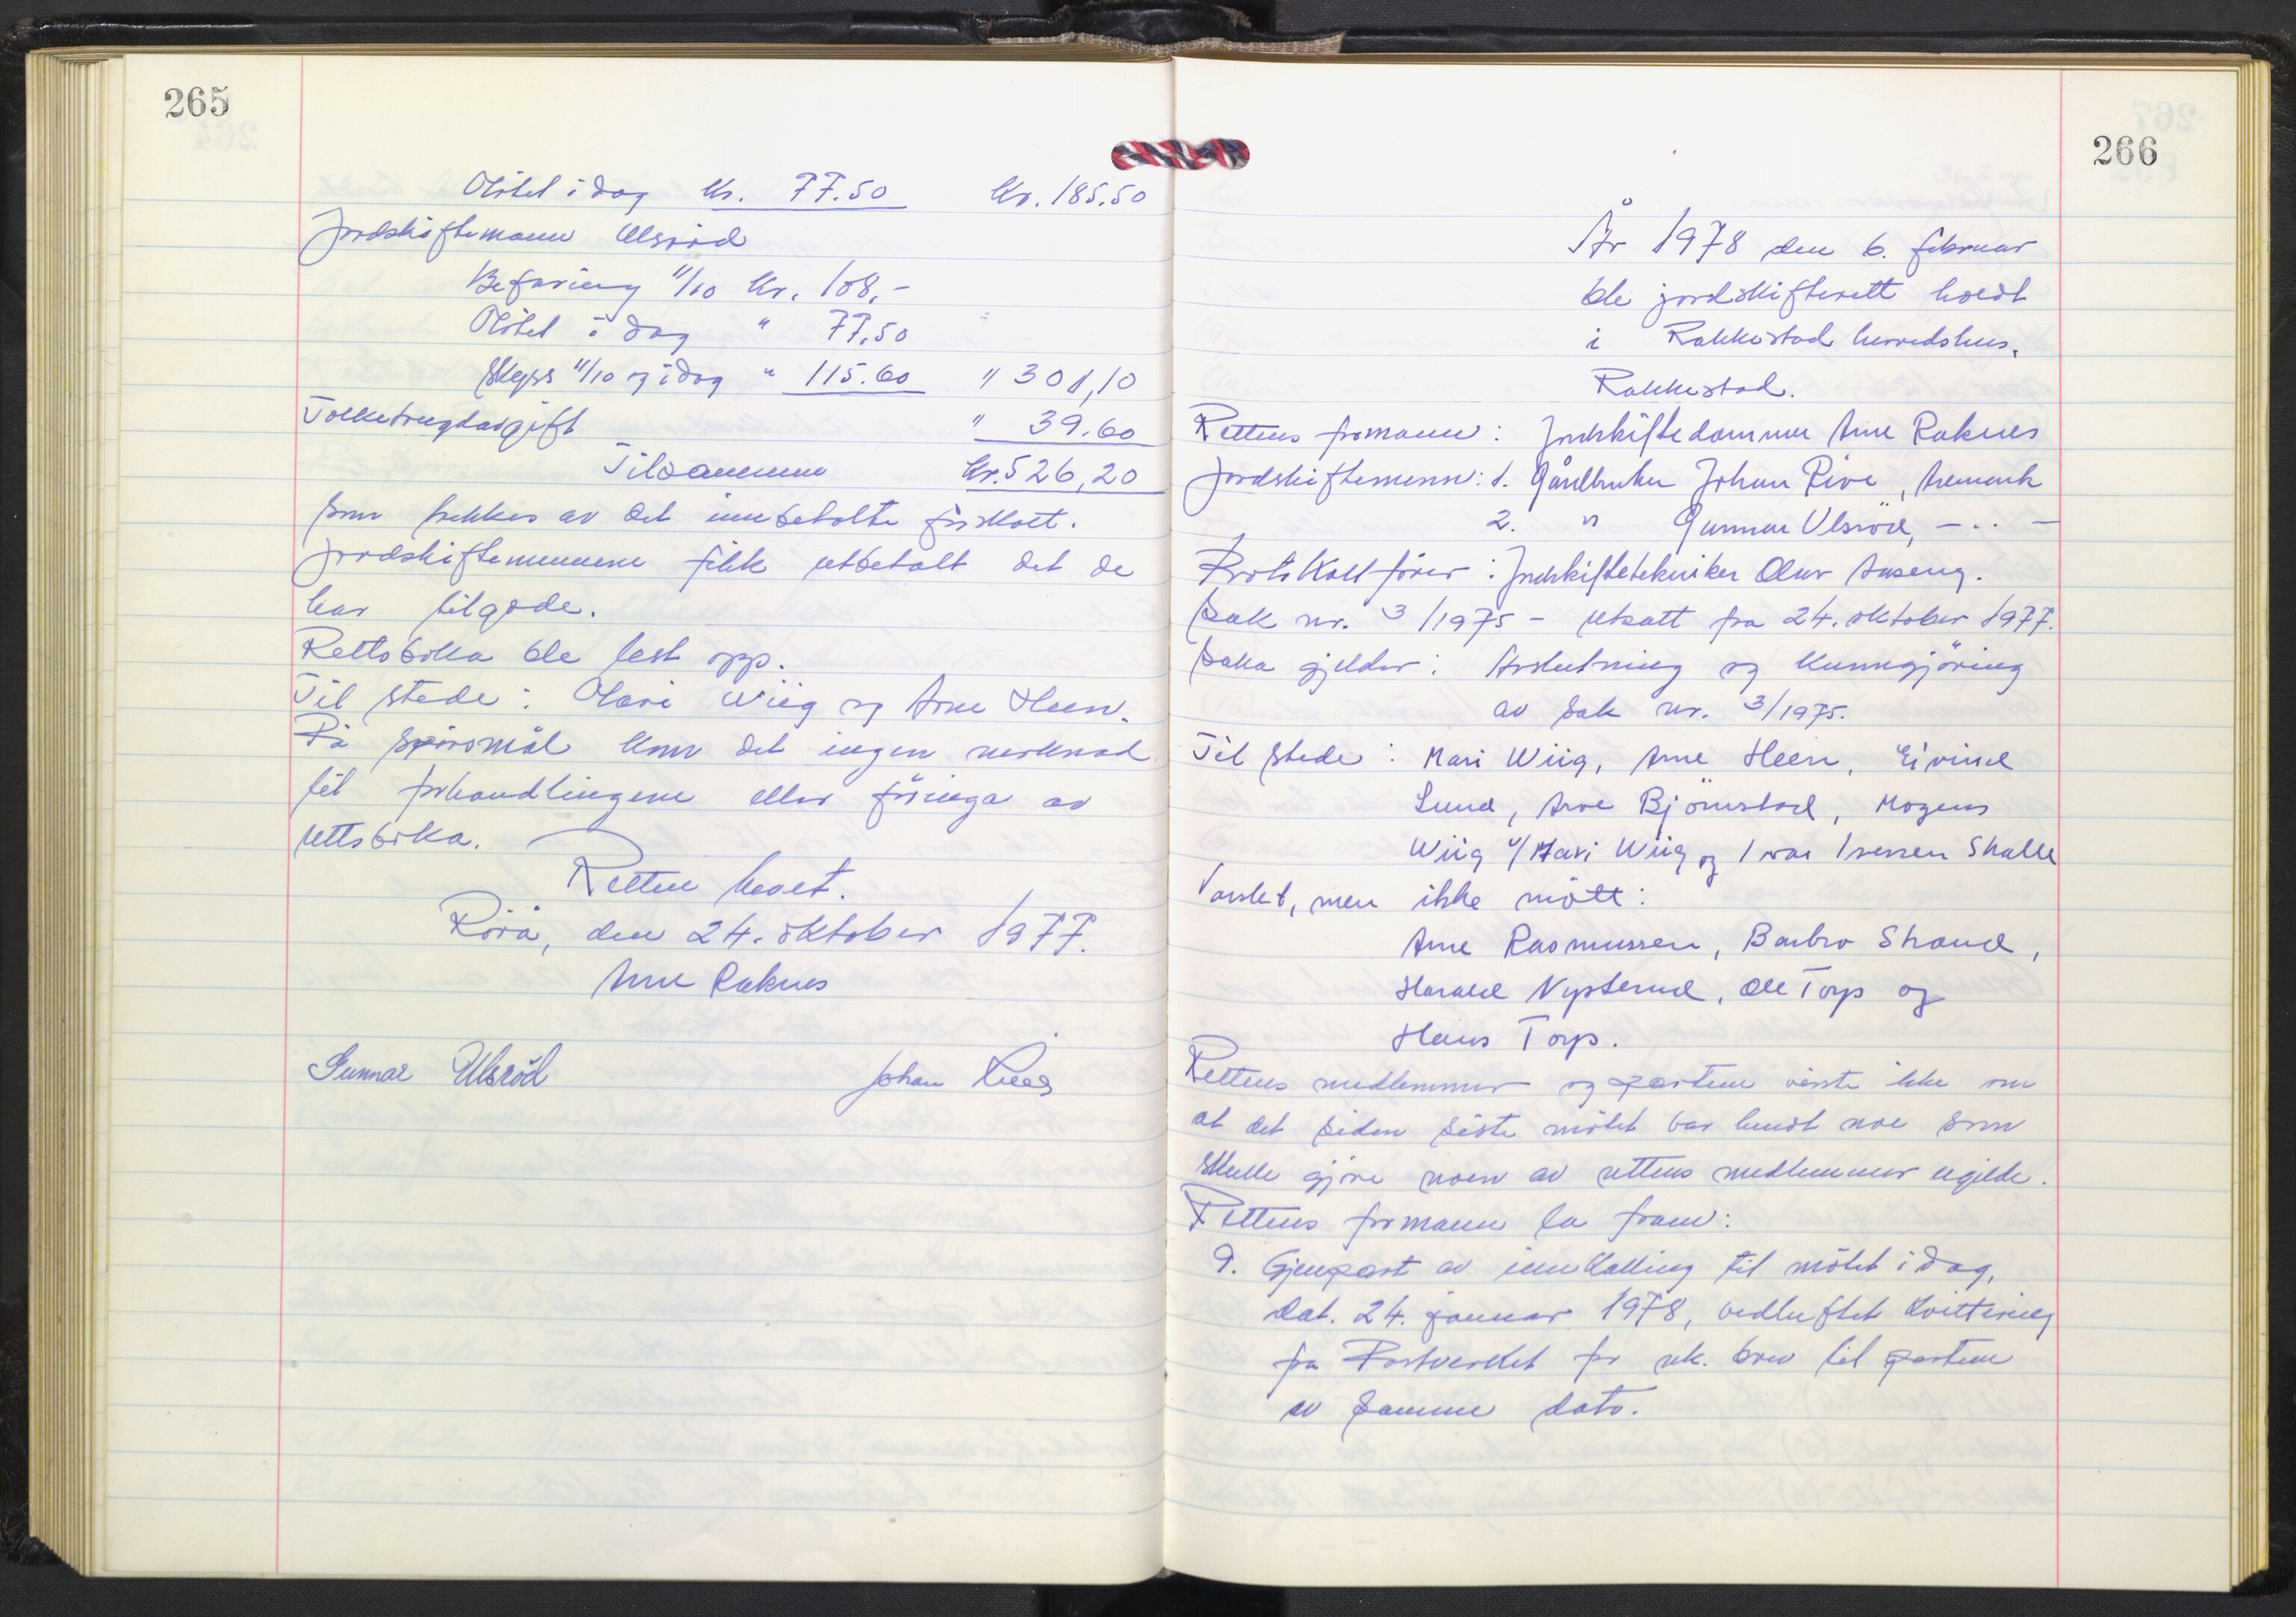 265
Møtet i dag kr. 77.50 kr. 185.50
Jordskiftemann Ulsröd
Befaring 11/10 kr. 108.-
Møtet i dag " 77.50
Skyss 11/10 og i dag " 115.60 " 301,10
Folketrygdavgift " 39.60
Tilsammen kr. 526,20
som trekkes av det innbetalte forskott.
Jordskiftemennene fikk utbetalt det de
har tilgode.
Rettsboka ble lest opp.
Til stede: Mari Wiig og Arne Heen.
På spörsmål kom det ingen merknad
til forhandlingene eller föringa av
rettsboka.
Retten hevet.
Rörå, den 24. oktober 1977.
Arne Raknes
Gunnar Ulsröd Johan
266
År 1978 den 6. februar
ble jordskifterett holdt
i Rakkestad herredshus,
Rakkestad.
Rettens formann: Jordskiftedommer Arne Raknes
Jordskiftemenn: 1. Gårdbruker Johan Rive, Aremark
2. " Gunnar Ulsröd, - " -
Protokollförer: Jordskiftetekniker Olav Aaseng.
Sak nr. 3/1975 - utsatt fra 24. oktober 1977.
Saka gjelder: Avslutning og kunngjöring
av sak nr. 3/1975.
Til stede: Mari Wiig, Arne Heen, Eivind
Lund, Arve Björnstad, Mogens
Wiig v/Mari Wiig og Ivar Iversen Skalle
Varslet, men ikke mött:
Arne Rasmussen, Barbro Strand,
Harald Nysterud, Ole Torp og
Hans Torp.
Rettens medlemmer og partene visste ikke om
at det siden siste mötet var hendt noe som
skulle gjöre noen av rettens medlemmer ugilde.
Rettens formann la fram:
9. Gjenpart av innkalling til mötet i dag,
dat. 24. januar 1978, vedheftet kvittering
fra Postverket for rek. brev til partene
av samme dato.